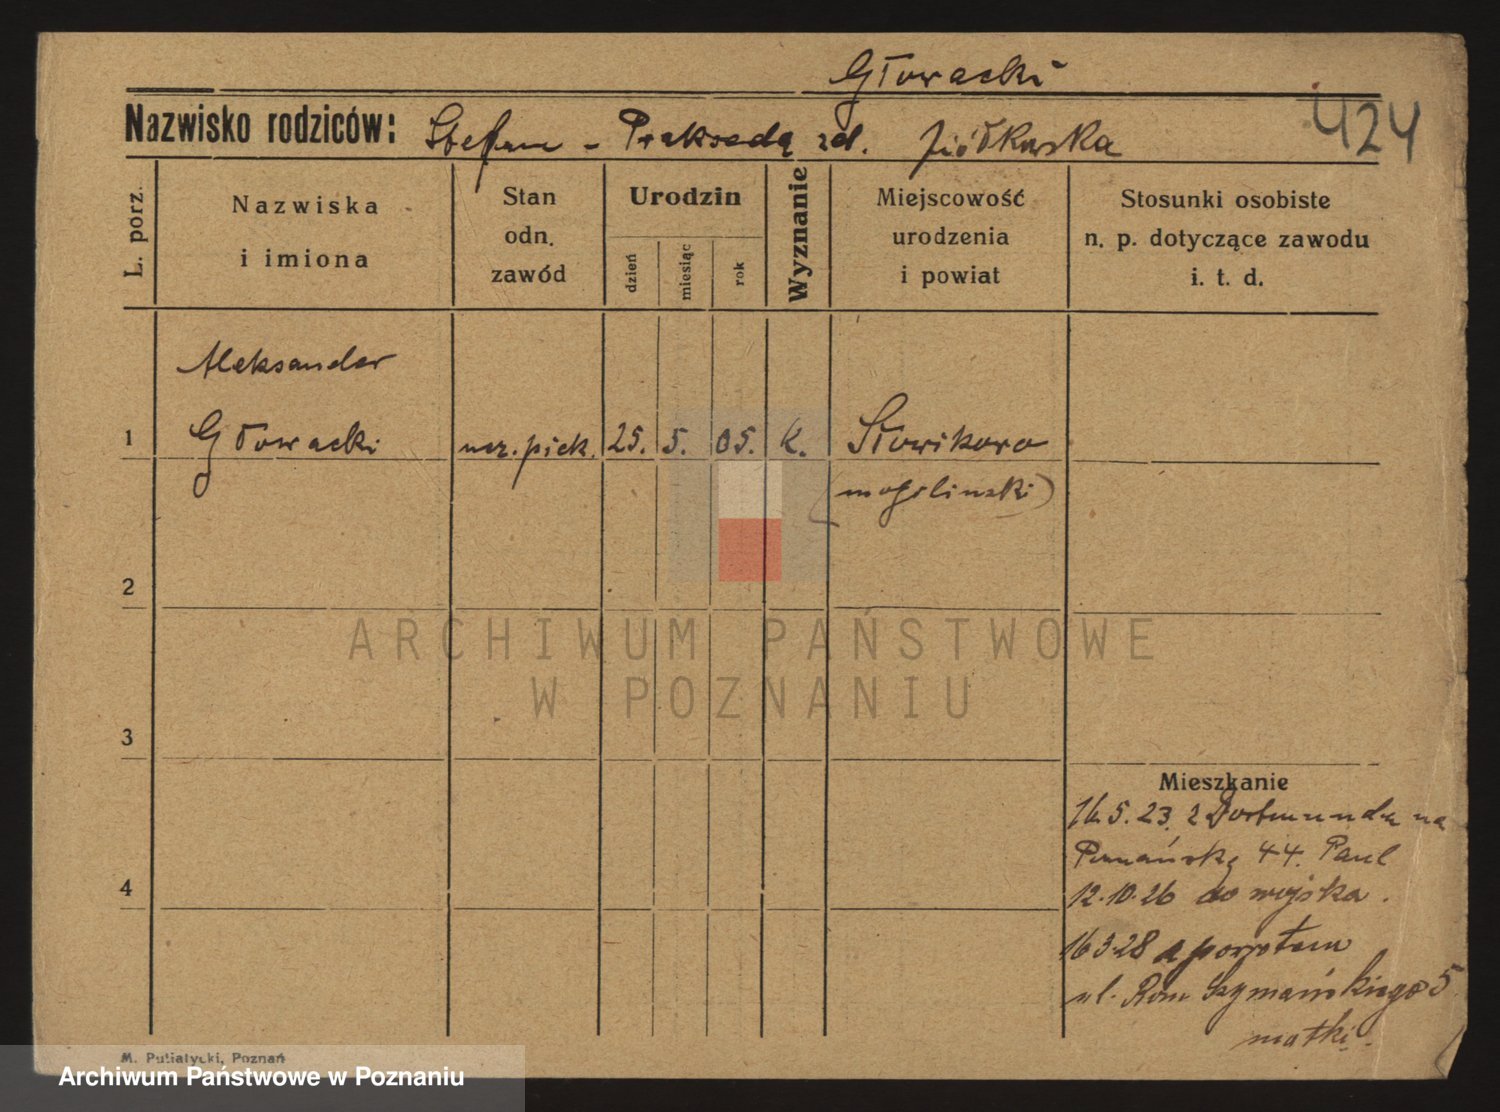 Głowacki
Nazwisko rodziców: Stefan - Praksedą zd. Ziółkowska
424
L. porz.
Nazwiska
i imiona
Stan
odn.
zawód
Urodzin
dzień
miesiąc
rok
Wyznanie
Miejscowość
urodzenia
i powiat
Stosunki osobiste
n. p. dotyczące zawodu
i. t. d.
Aleksander
1 Głowacki ucz. piek. 25. 5. 05. k. Słowikowo
(mogilinski)
2
3
4
ARCHIWUM PAŃSTWOWE
W POZNANIU
Mieszkanie
16.5.23. z Dortmunda na
Poznańską 44. Paul
12.10.26 do wojska.
16 3.28 z powrotem
ul. Rom Szymańskiego 5
matki.
M. Putiatycki, Poznań
Archiwum Państwowe w Poznaniu